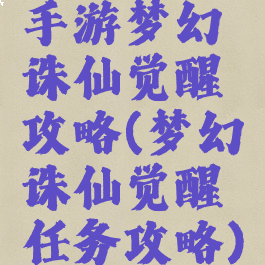 手游梦幻
诛仙觉醒
攻略(梦幻
诛仙觉醒
任务攻略)